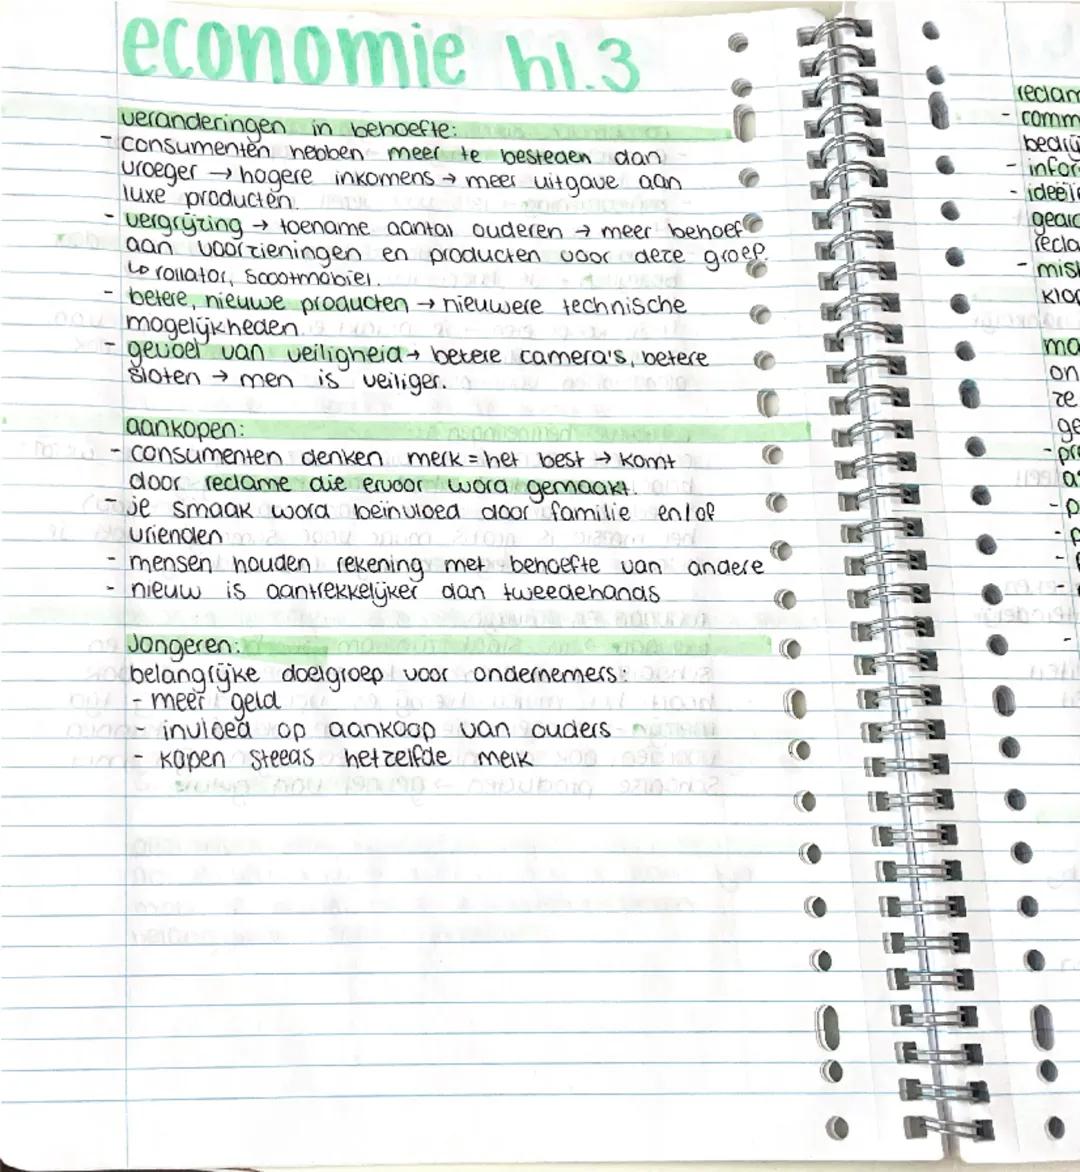 economie h1.3
veranderingen in behoefte:
- consumenten hebben meer te besteden dan
vroeger → hogere inkomens → meer uitgave aan
luxe producten.
- vergrijzing → toename aantal ouderen → meer behoef
aan voorzieningen en producten voor deze groep.
↳ rollator, scootmobiel.
- betere, nieuwe producten → nieuwere technische
mogelijkheden.
- gevoel van veiligheid → betere camera's, betere
sloten → men is veiliger.
aankopen:
- consumenten denken merk = het best → komt
door reclame die ervoor word gemaakt.
- je smaak word beïnvloed door familie en/of
vrienden
- mensen houden rekening met behoefte van andere
- nieuw is aantrekkelijker dan tweedehands
Jongeren:
belangrijke doelgroep voor ondernemers:
- meer geld
- invloed op aankoop van ouders
- kopen steeds hetzelfde merk
reclam
- comm
bedrij
- infor
- ideeïn
recla
- mis
klo
ma
on
ze
ge
- pr